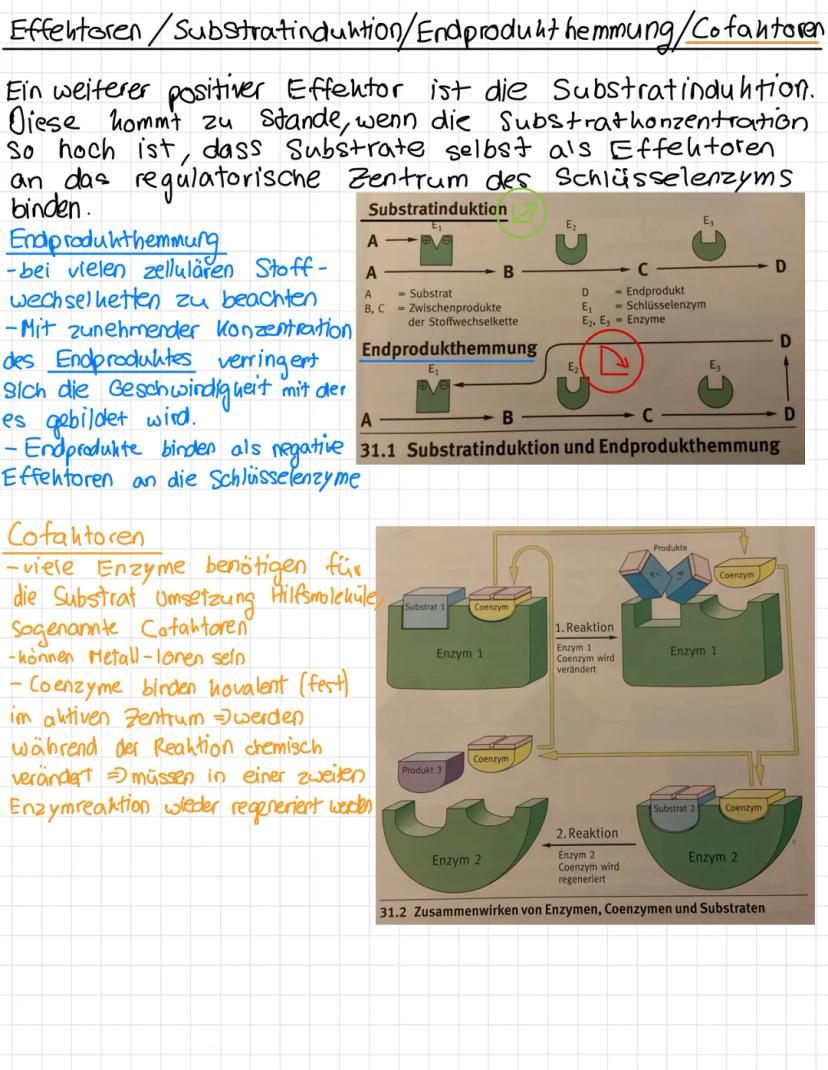 Effektoren / Substratinduktion / Endprodukthemmung / Cofaktoren
Ein weiterer positiver Effektor ist die Substratinduktion.
Diese kommt zu Stande, wenn die Substratkonzentration
so hoch ist, dass Substrate selbst als Effektoren
an das regulatorische Zentrum des Schlüsselenzyms
binden.
Endprodukthemmung
- bei vielen zellulären Stoff-
wechselketten zu beachten
- Mit zunehmender Konzentration
des Endproduktes verringert
sich die Geschwindigkeit mit der
es gebildet wird.
- Endprodukte binden als negative
Effektoren an die Schlüsselenzyme
Substratinduktion
E₁ E₂ E₃
A
A B C D
A = Substrat
B, C = Zwischenprodukte
der Stoffwechselkette
D = Endprodukt
E₁ = Schlüsselenzym
E₂, E₃ = Enzyme
Endprodukthemmung
D
E₁ E₂ E₃
A B C D
31.1 Substratinduktion und Endprodukthemmung
Cofaktoren
- viele Enzyme benötigen für
die Substrat Umsetzung Hilfsmoleküle,
sogenannte Cofaktoren
- können Metall-Ionen sein
- Coenzyme binden kovalent (fest)
im aktiven Zentrum ⇒ werden
während der Reaktion chemisch
verändert ⇒ müssen in einer zweiten
Enzymreaktion wieder regeneriert werden
Substrat 1
Coenzym
Enzym 1
1. Reaktion
Enzym 1
Coenzym wird
verändert
Produkte
P₁ P₂
Coenzym
Enzym 1
Produkt 3
Coenzym
Enzym 2
2. Reaktion
Enzym 2
Coenzym wird
regeneriert
Substrat 2
Coenzym
Enzym 2
31.2 Zusammenwirken von Enzymen, Coenzymen und Substraten